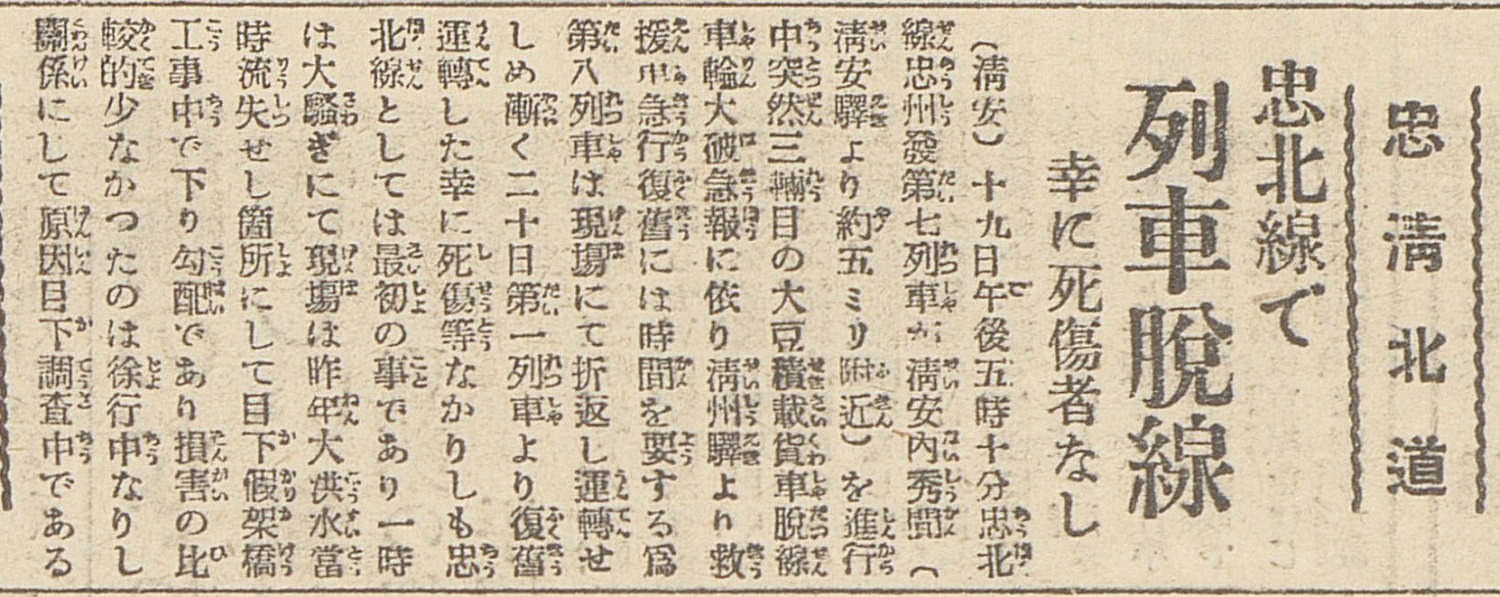 忠淸北道
忠北線で
列車脫線
幸に死傷者なし
(淸安)十九日午後五時十分忠北
線忠州發第七列車が淸安內秀間(
淸安驛より約五ミリ附近)を進行
中突然三輛目の大豆積載貨車脫線
車輪大破急報に依り淸州驛より救
援申急行復舊には時間を要する爲
第八列車は現場にて折返し運轉せ
しめ漸く二十日第一列車より復舊
運轉した幸に死傷等なかりしも忠
北線としては最初の事であり一時
は大騷ぎにて現場は昨年大洪水當
時流失せし箇所にして目下假架橋
工事中で下り勾配であり損害の比
較的少なかつたのは徐行中なりし
關係にして原因目下調査中である